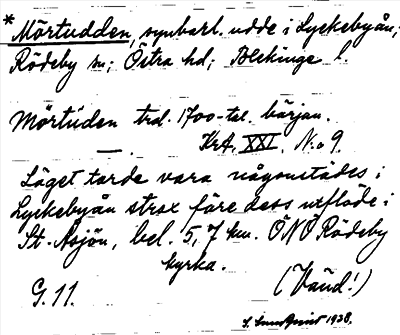 * Mörtudden, synbarl. udde i Lyckebyån;
Rödeby sn; Östra hd; Blekinge l.
Mörtuden trol. 1700-tal. början.
— . KrA. XXI. No 9.
Läget torde vara någonstädes i
Lyckebyån strax före dess utflöde i
St. Åsjön, bel. 5,7 km. ÖNÖ Rödeby
kyrka.
G. 11. (Vänd!)
1938.